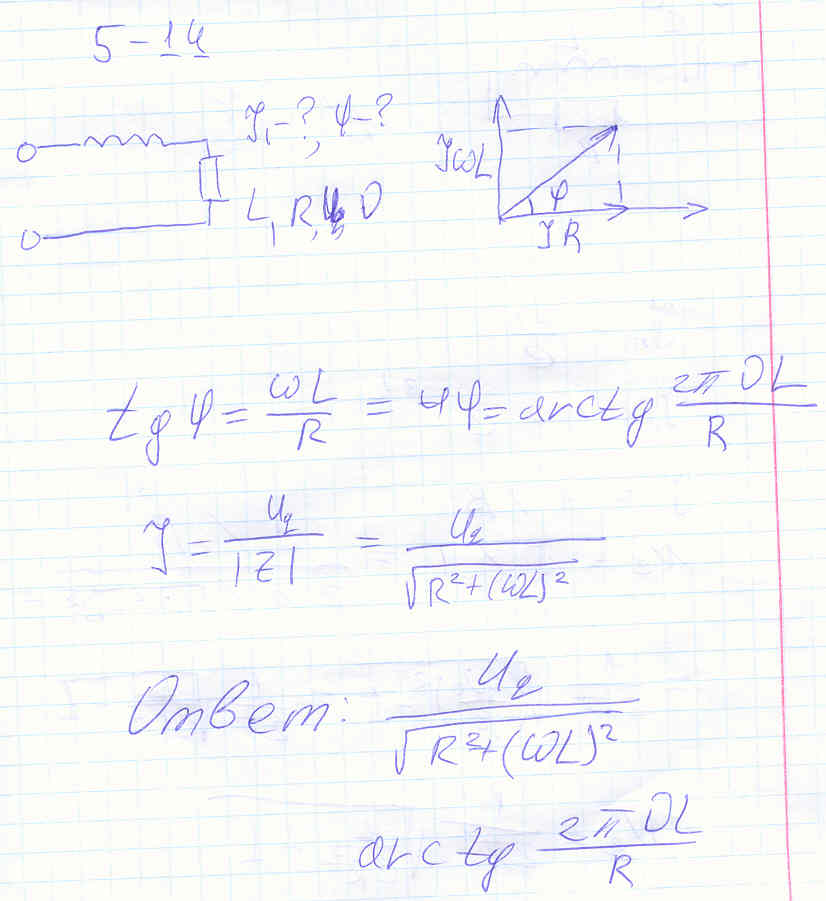 5-14
J, -?, φ-?
L, R, U, D
JωL
φ
JR
tg φ = ωL/R = φ = arctg 2π DL/R
J = Uq/|Z| = Uq/√R²+(ωL)²
Ответ: Uq/√R²+(ωL)²
arctg 2π DL/R